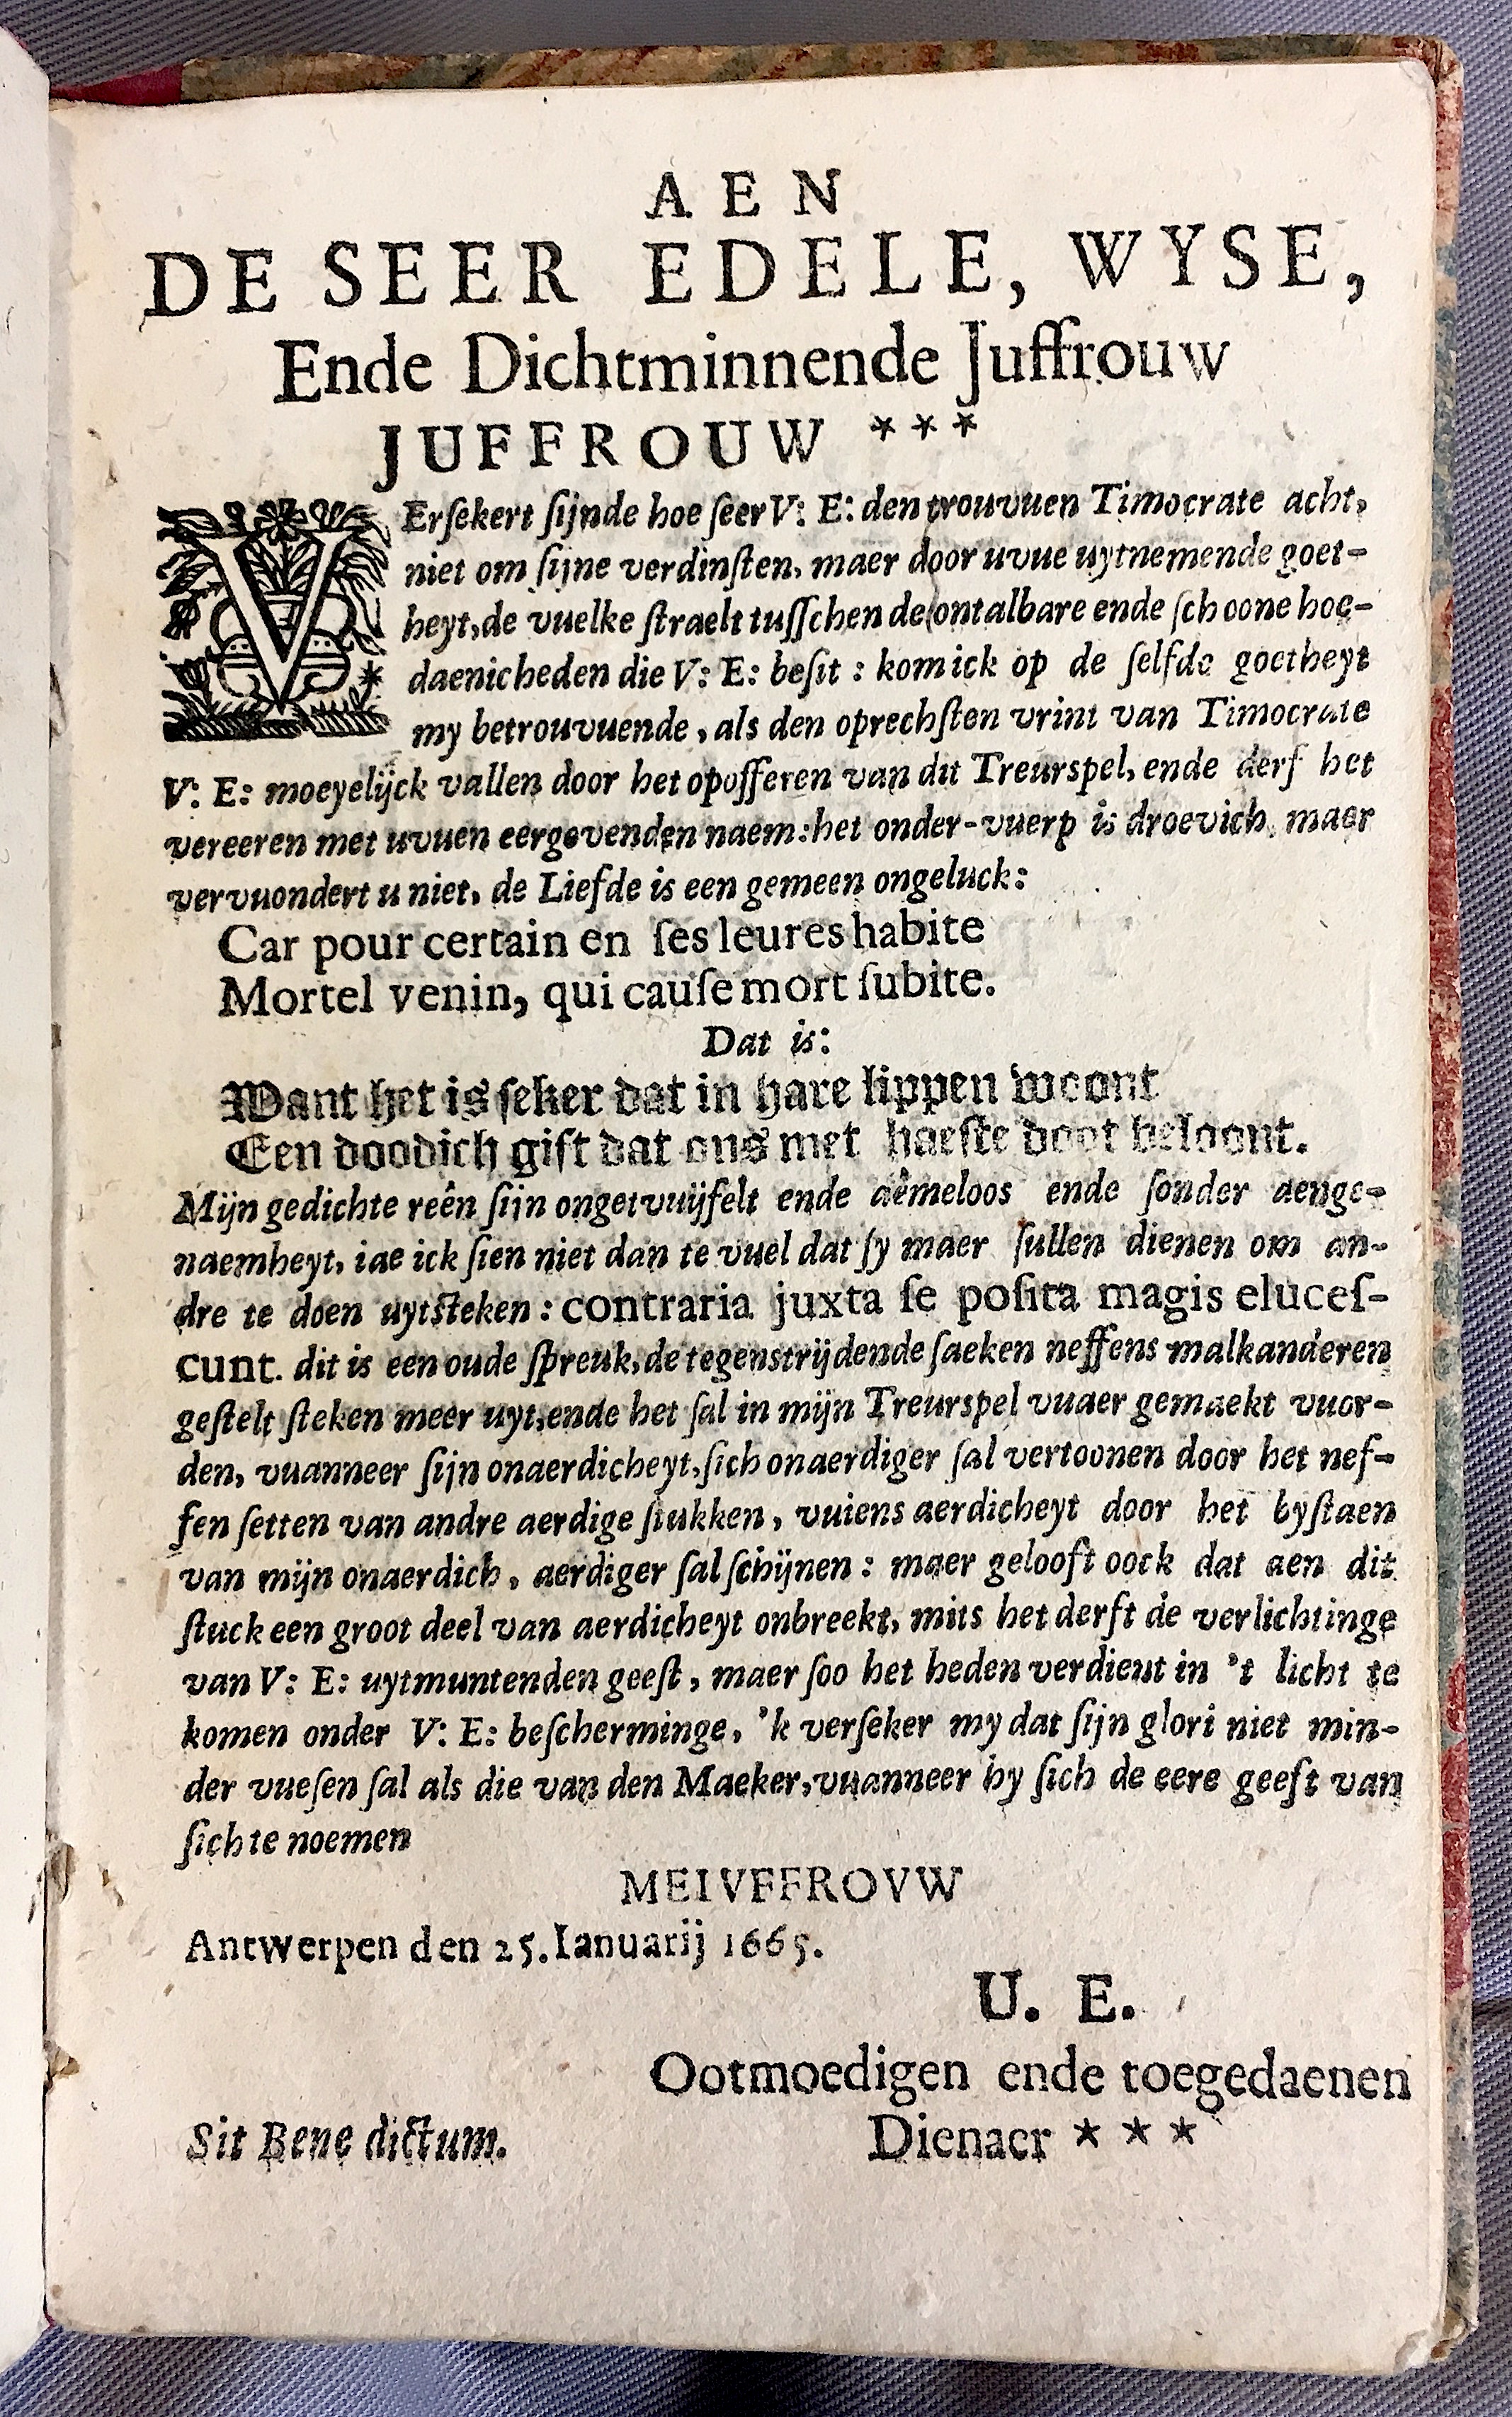 AEN
DE SEER EDELE, WYSE,
Ende Dichtminnende Juffrouw
JUFFROUW ***
VErſekert ſijnde hoe ſeer V: E: den trouvuen Timocrate acht,
niet om ſijne verdinſten, maer door uvue uytnemende goet-
heyt, de vuelke ſtraelt tuſſchen de ontalbare ende ſchoone hoe-
daenicheden die V: E: beſit : kom ick op de ſelfde goetheyt
my betrouvuende, als den oprechſten vrint van Timocrate
V: E: moeyelijck vallen door het opofferen van dit Treurspel, ende derf het
vereeren met uvuen eergevenden naem: het onder-vuerp is droevich, maer
vervuondert u niet, de Liefde is een gemeen ongeluck:
Car pour certain en ſes leures habite
Mortel venin, qui cauſe mort ſubite.
Dat is:
Want het is ſeker dat in hare lippen woont
Een doodich gift dat ons met haeſte doot beloont.
Mijn gedichte reên ſijn ongetvuijfelt ende aêmeloos ende ſonder aenge-
naemheyt, iae ick ſien niet dan te vuel dat ſy maer ſullen dienen om an-
dre te doen uytſteken : contraria juxta ſe poſita magis eluceſ-
cunt. dit is een oude ſpreuk, de tegenstrijdende ſaeken neffens malkanderen
geſtelt ſteken meer uyt, ende het ſal in mijn Treurspel vuaer gemaekt vuor-
den, vuanneer ſijn onaerdicheyt, ſich onaerdiger ſal vertoonen door het nef-
fen ſetten van andre aerdige ſtukken, vuiens aerdicheyt door het byſtaen
van mijn onaerdich, aerdiger ſal ſchijnen : maer gelooft oock dat aen dit
ſtuck een groot deel van aerdicheyt onbreekt, mits het derft de verlichtinge
van V: E: uytmuntenden geeſt, maer ſoo het heden verdient in 't licht te
komen onder V: E: beſcherminge, 'k verſeker my dat ſijn glori niet min-
der vueſen ſal als die van den Maeker, vuanneer hy ſich de eere geeft van
ſich te noemen
MEIVFFROVW
Antwerpen den 25. Ianuarij 1665.
U. E.
Ootmoedigen ende toegedaenen
Sit Bene dictum. Dienaer ***